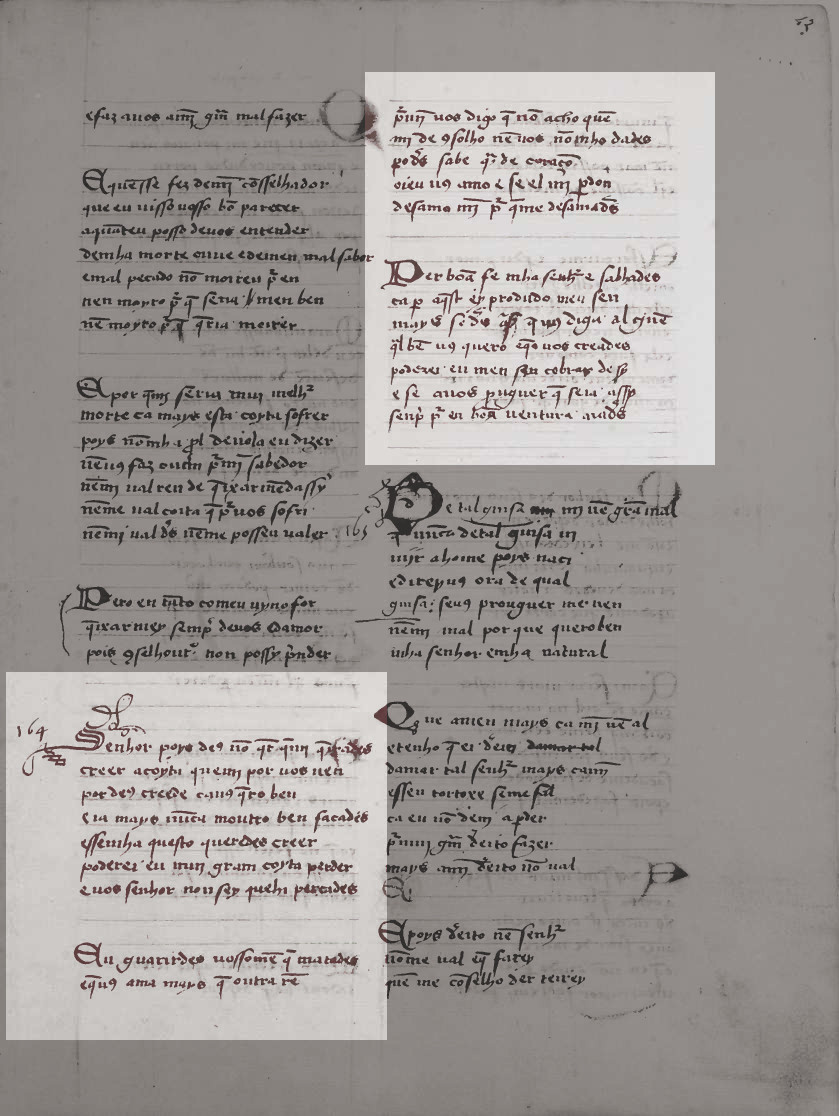 efaz auos amĩ grã mal fazer
E quẽ sse fez demĩ cõsselhador
que eu uisso uosso bõ parecer
aquãteu posso deuos entender
demha morte ouue edemen mal sabor
emal pecado nõ moireu pʳ en
nen moyro pʳ q̃ seria men ben
nẽ moyro pʳ q̃ q̃ria moirer
E por q̃mj seria mui melhʳ
morte ca mays esta coyta sofrer
poys nõmh a prol deuola eu dizer
nẽ uꝯ faz outrẽ pʳ mj sabedor
nẽmj ual ren de q̃ixar mẽ dassy
nẽme ual coita q̃ pʳ uos sofri
nẽmj ual dꝰs nẽme posseu ualer
Pero en tãto comeu uyuo for
q̃ixar mey sempʳ deuos e damor
pois ꝯselhoutʳ non possy p̃nder
164
Senhor poys deꝯ nõ q̃r q̃mj q̃irades
creer acoyta quemj por uos uen
por deꝯ creede ca uꝯ q̃ro ben
e ia mays nũca mouito ben façades
essemha questo queredes creer
poderei eu muj gram coyta perder
e uos senhor non sey quehi percades
En guarirdes uossomẽ q̃ matades
eq̃uꝯ ama mays q̃ outra rẽ
pʳ mj uos digo q̃ nõ acho quẽ
mi de ꝯselho nẽ uos nõ mho dades
pero dꝰs sabe q̃ de coraçõ
oieu uꝯ amo e se el mj pdon
desamo mj pʳ q̃me desamadꝰs
Per bõa fe mha senhʳ e sabhades
ca p aq̃st ey produdo meu sen
mays se dꝰs q̃s q̃ uꝯ diga alguẽ
q̃l bẽ uꝯ quero eq̃o uos creades
poderei eu meu sen cobrar des y
e se auos prouguer q̃ seia assy
sempʳ pʳ en bõa uentura aiadꝰs
165
De tal guisa mj uẽ grã mal
q̃ nũca de tal guisa ui
uijr ahome poys naci
edireyuꝯ ora de qual
guisa: seuꝯ prouguer me uen
uẽmj mal por que quero ben
mha senhor emha natural
Que ameu mays ca mj nẽ al
etenho q̃ ei dʳeito
damar tal senhʳ mays camj
esseu tortoxe seme fal
ca eu nõ deuj a pder
pʳ muj grã dʳeito fazer
mays amj dʳeito nõ ual
E poys dʳeito nẽ senhʳ
nõme ual eq̃ farey
quẽ me cõselho der terrey